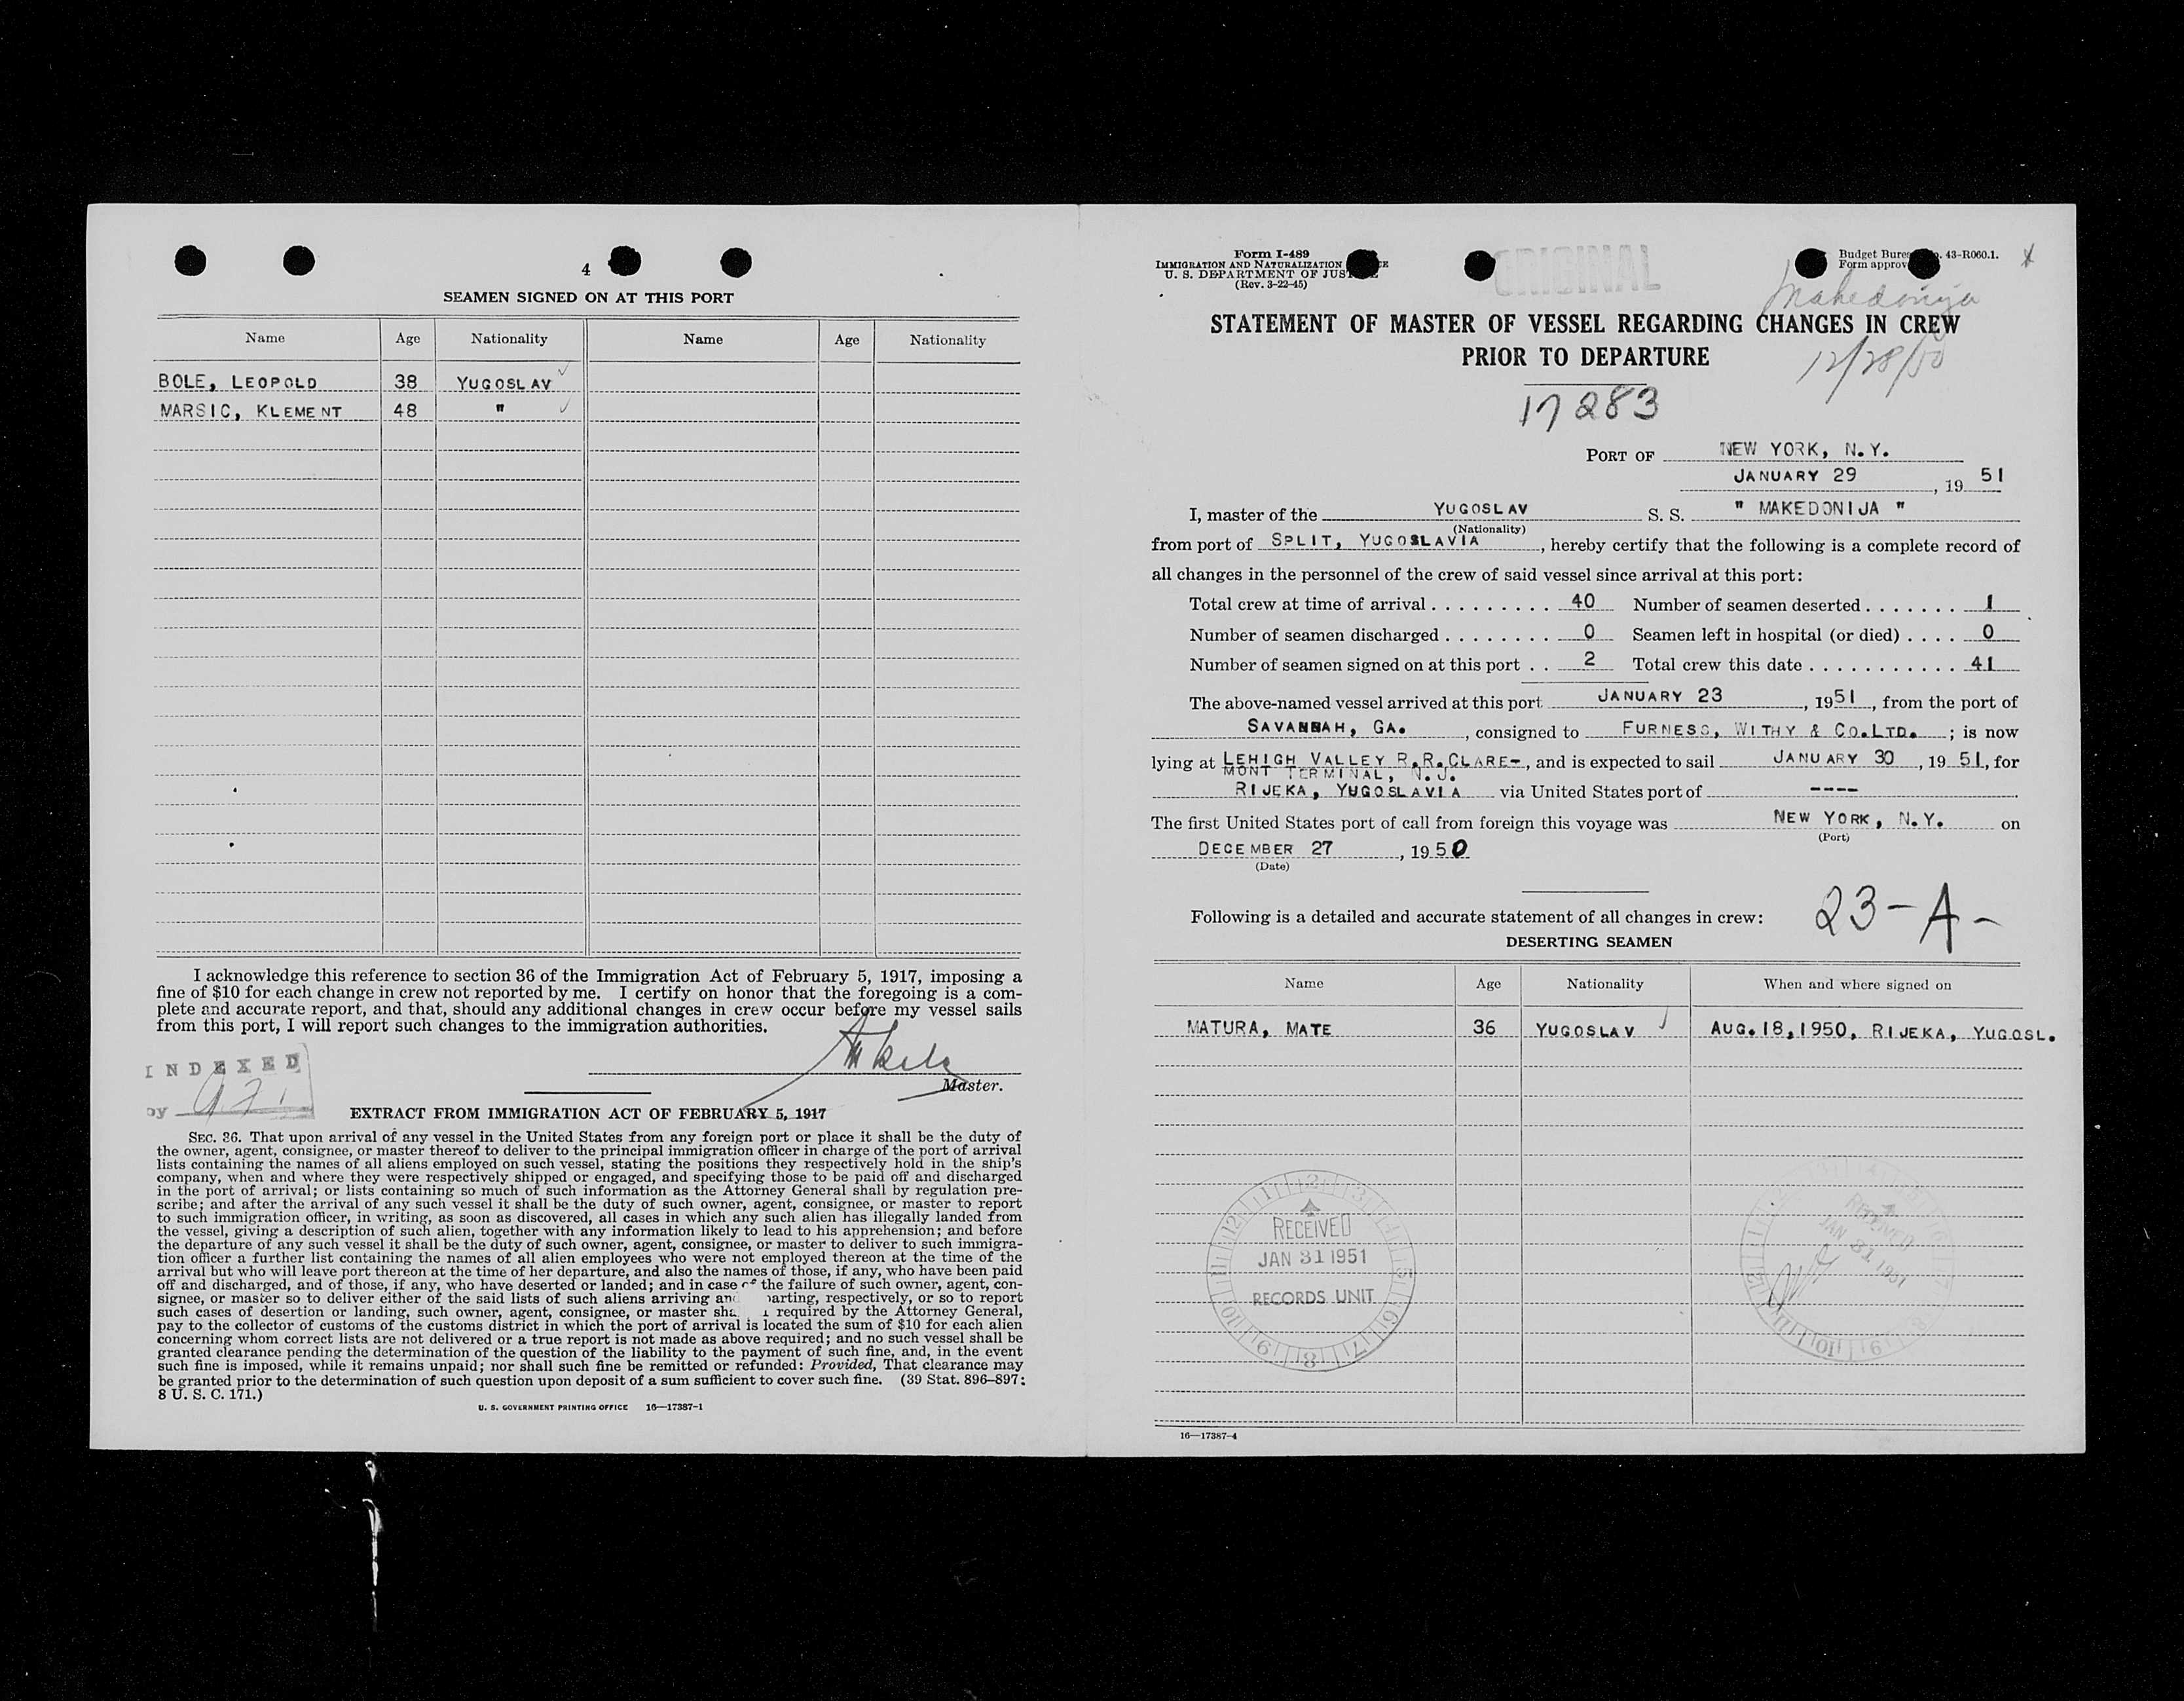 4
SEAMEN SIGNED ON AT THIS PORT
Name Age Nationality Name Age Nationality
BOLE, LEOPOLD 38 YUGOSLAV ✓
MARSIC, KLEMENT 48 " ✓
I acknowledge this reference to section 36 of the Immigration Act of February 5, 1917, imposing a
fine of $10 for each change in crew not reported by me. I certify on honor that the foregoing is a com-
plete and accurate report, and that, should any additional changes in crew occur before my vessel sails
from this port, I will report such changes to the immigration authorities.
INDEXED
by
Master.
EXTRACT FROM IMMIGRATION ACT OF FEBRUARY 5, 1917
SEC. 36. That upon arrival of any vessel in the United States from any foreign port or place it shall be the duty of
the owner, agent, consignee, or master thereof to deliver to the principal immigration officer in charge of the port of arrival
lists containing the names of all aliens employed on such vessel, stating the positions they respectively hold in the ship's
company, when and where they were respectively shipped or engaged, and specifying those to be paid off and discharged
in the port of arrival; or lists containing so much of such information as the Attorney General shall by regulation pre-
scribe; and after the arrival of any such vessel it shall be the duty of such owner, agent, consignee, or master to report
to such immigration officer, in writing, as soon as discovered, all cases in which any such alien has illegally landed from
the vessel, giving a description of such alien, together with any information likely to lead to his apprehension; and before
the departure of any such vessel it shall be the duty of such owner, agent, consignee, or master to deliver to such immigra-
tion officer a further list containing the names of all alien employees who were not employed thereon at the time of the
arrival but who will leave port thereon at the time of her departure, and also the names of those, if any, who have been paid
off and discharged, and of those, if any, who have deserted or landed; and in case of the failure of such owner, agent, con-
signee, or master so to deliver either of the said lists of such aliens arriving and parting, respectively, or so to report
such cases of desertion or landing, such owner, agent, consignee, or master sha required by the Attorney General,
pay to the collector of customs of the customs district in which the port of arrival is located the sum of $10 for each alien
concerning whom correct lists are not delivered or a true report is not made as above required; and no such vessel shall be
granted clearance pending the determination of the question of the liability to the payment of such fine, and, in the event
such fine is imposed, while it remains unpaid; nor shall such fine be remitted or refunded: Provided, That clearance may
be granted prior to the determination of such question upon deposit of a sum sufficient to cover such fine. (39 Stat. 896–897;
8 U. S. C. 171.)
U. S. GOVERNMENT PRINTING OFFICE 16—17387-1
Form I-489
IMMIGRATION AND NATURALIZATION
U. S. DEPARTMENT OF JUSTICE
(Rev. 3-22-45)
ORIGINAL
Budget Bureau No. 43-R060.1.
Form approved
Makedonija
STATEMENT OF MASTER OF VESSEL REGARDING CHANGES IN CREW
PRIOR TO DEPARTURE
12/28/50
17283
PORT OF NEW YORK, N.Y.
JANUARY 29, 1951
I, master of the YUGOSLAV S. S. " MAKEDONIJA "
(Nationality)
from port of SPLIT, YUGOSLAVIA, hereby certify that the following is a complete record of
all changes in the personnel of the crew of said vessel since arrival at this port:
Total crew at time of arrival . . . . . . . . . 40 Number of seamen deserted . . . . . . . 1
Number of seamen discharged . . . . . . . . 0 Seamen left in hospital (or died) . . . . 0
Number of seamen signed on at this port . . 2 Total crew this date . . . . . . . . . . . 41
The above-named vessel arrived at this port JANUARY 23, 1951, from the port of
SAVANNAH, GA., consigned to FURNESS, WITHY & CO.LTD.; is now
lying at LEHIGH VALLEY R.R.CLARE-, and is expected to sail JANUARY 30, 1951, for
MONT TERMINAL, N.J.
RIJEKA, YUGOSLAVIA via United States port of ----
The first United States port of call from foreign this voyage was NEW YORK, N.Y. on
(Port)
DECEMBER 27, 1950
(Date)
Following is a detailed and accurate statement of all changes in crew:
23-A-
DESERTING SEAMEN
Name Age Nationality When and where signed on
MATURA, MATE 36 YUGOSLAV ✓ AUG.18,1950, RIJEKA, YUGOSL.
RECEIVED
JAN 31 1951
RECORDS UNIT
RECEIVED
JAN 31 1951
16—17387-4